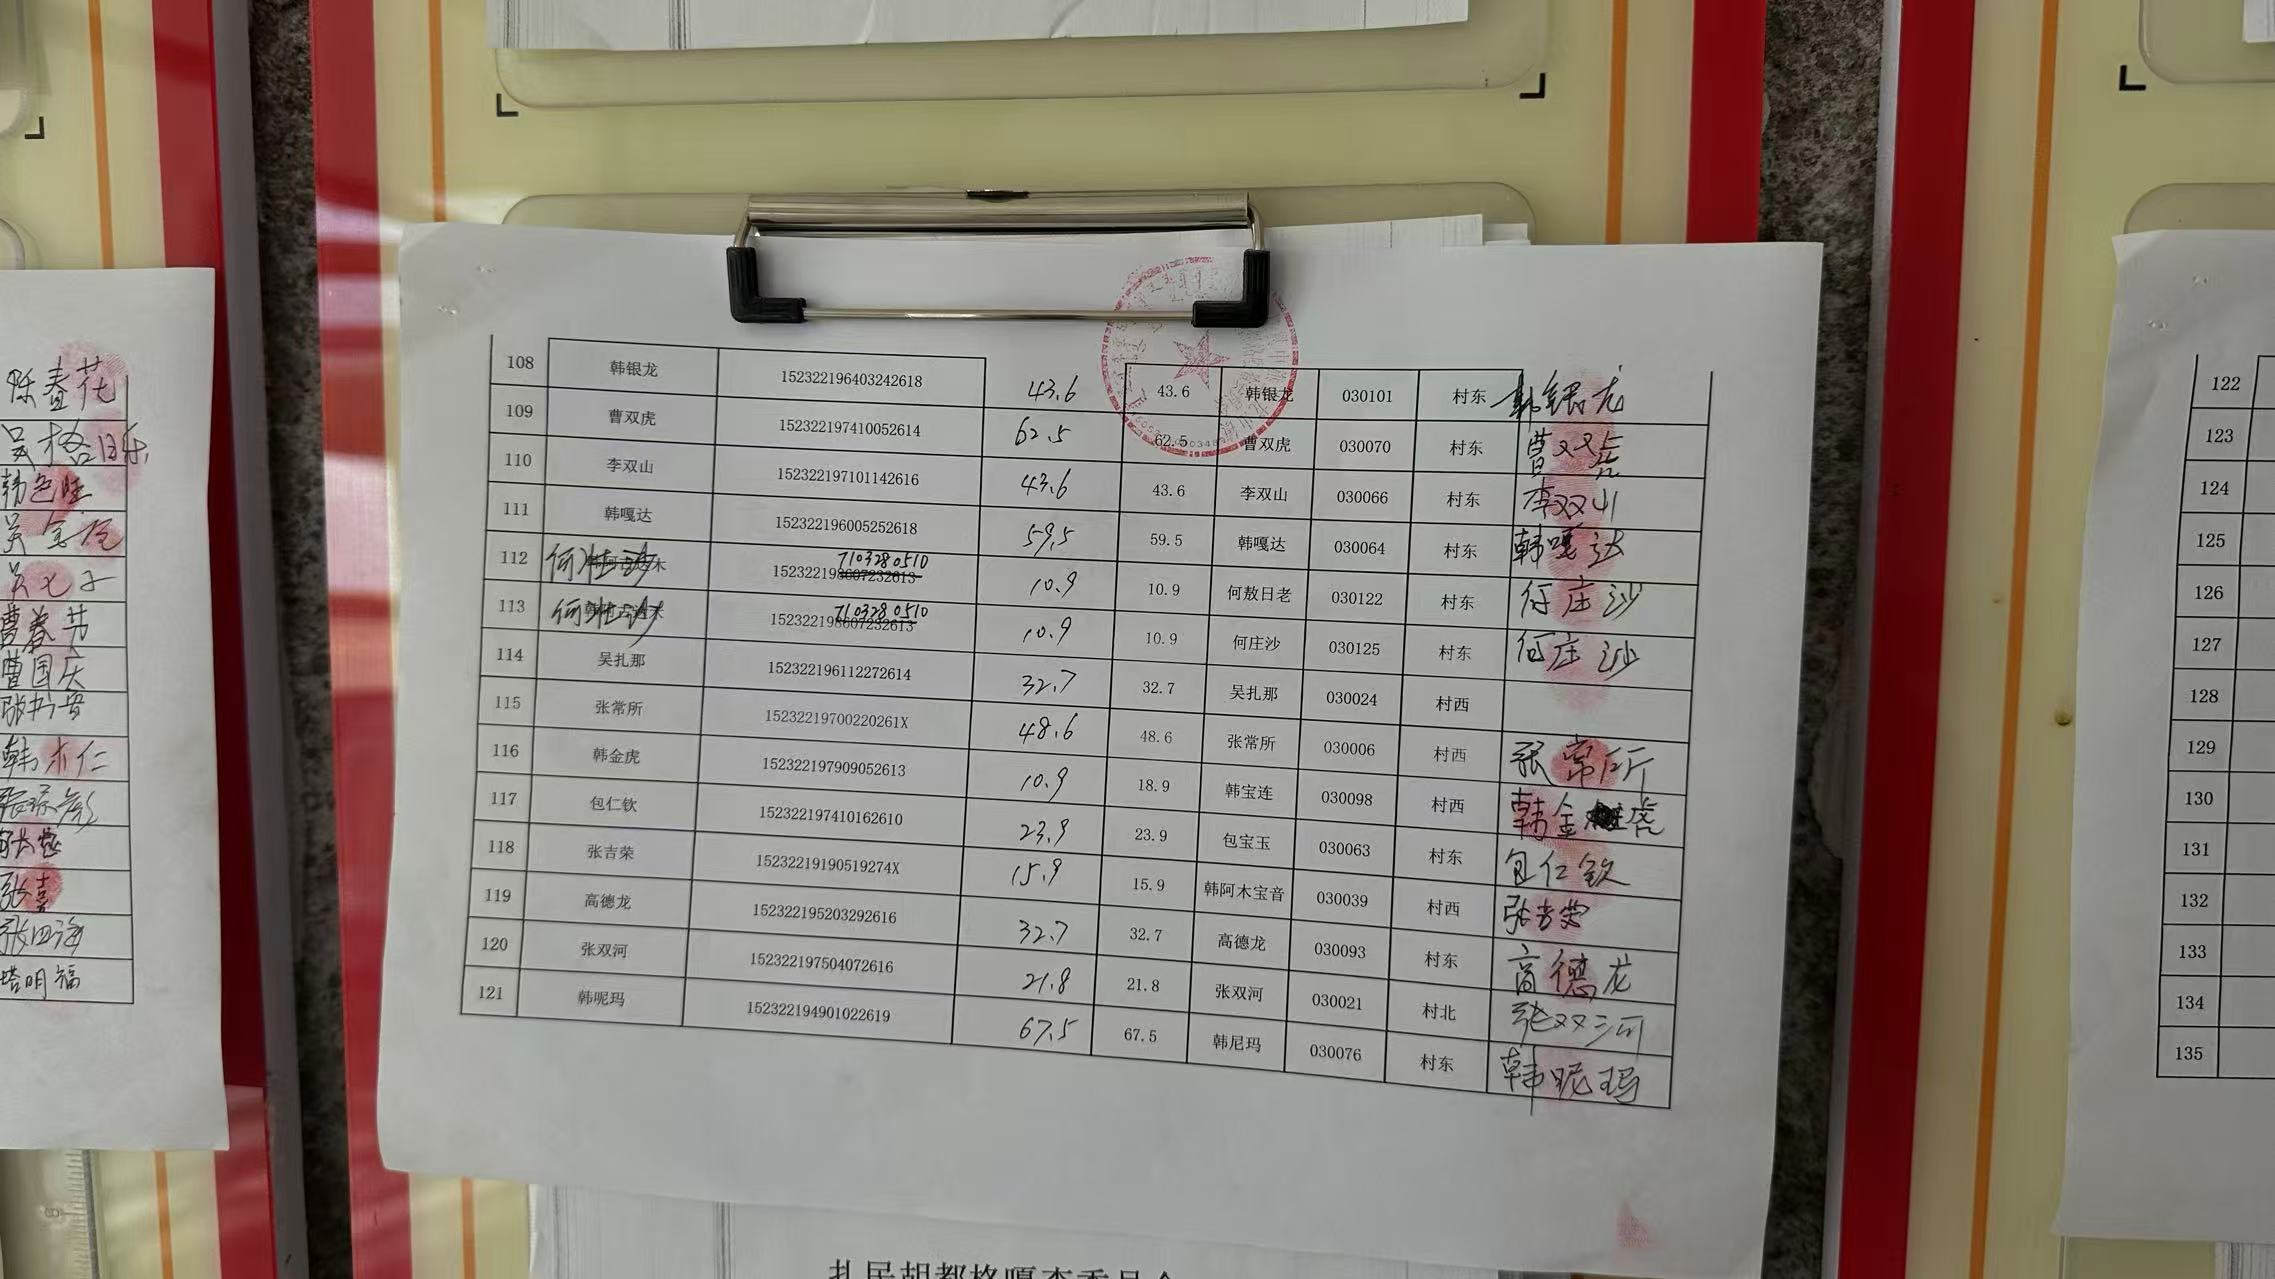 陈春花
吴格日乐
韩色旺
曹春芳
曹国庆
韩木仁
张喜
张四海
塔明福
108 韩银龙 152322196403242618 43.6 43.6 韩银龙 030101 村东 韩银龙
109 曹双虎 152322197410052614 62.5 62.5 曹双虎 030070 村东 曹双虎
110 李双山 152322197101142616 43.6 43.6 李双山 030066 村东 李双山
111 韩嘎达 152322196005252618 59.5 59.5 韩嘎达 030064 村东 韩嘎达
112 何庄沙 152322198607232613 7103280510 10.9 10.9 何敖日老 030122 村东 何庄沙
113 何庄沙 152322198607232613 7103280510 10.9 10.9 何庄沙 030125 村东 何庄沙
114 吴扎那 152322196112272614 32.7 32.7 吴扎那 030024 村西
115 张常所 15232219700220261X 48.6 48.6 张常所 030006 村西 张常所
116 韩金虎 152322197909052613 10.9 18.9 韩宝连 030098 村西 韩金虎
117 包仁钦 152322197410162610 23.9 23.9 包宝玉 030063 村东 包仁钦
118 张吉荣 15232219190519274X 15.9 15.9 韩阿木宝音 030039 村西 张吉荣
119 高德龙 152322195203292616 32.7 32.7 高德龙 030093 村东 高德龙
120 张双河 152322197504072616 21.8 21.8 张双河 030021 村北 张双河
121 韩呢玛 152322194901022619 67.5 67.5 韩尼玛 030076 村东 韩呢玛
122
123
124
125
126
127
128
129
130
131
132
133
134
135
扎民胡都格嘎查委员会